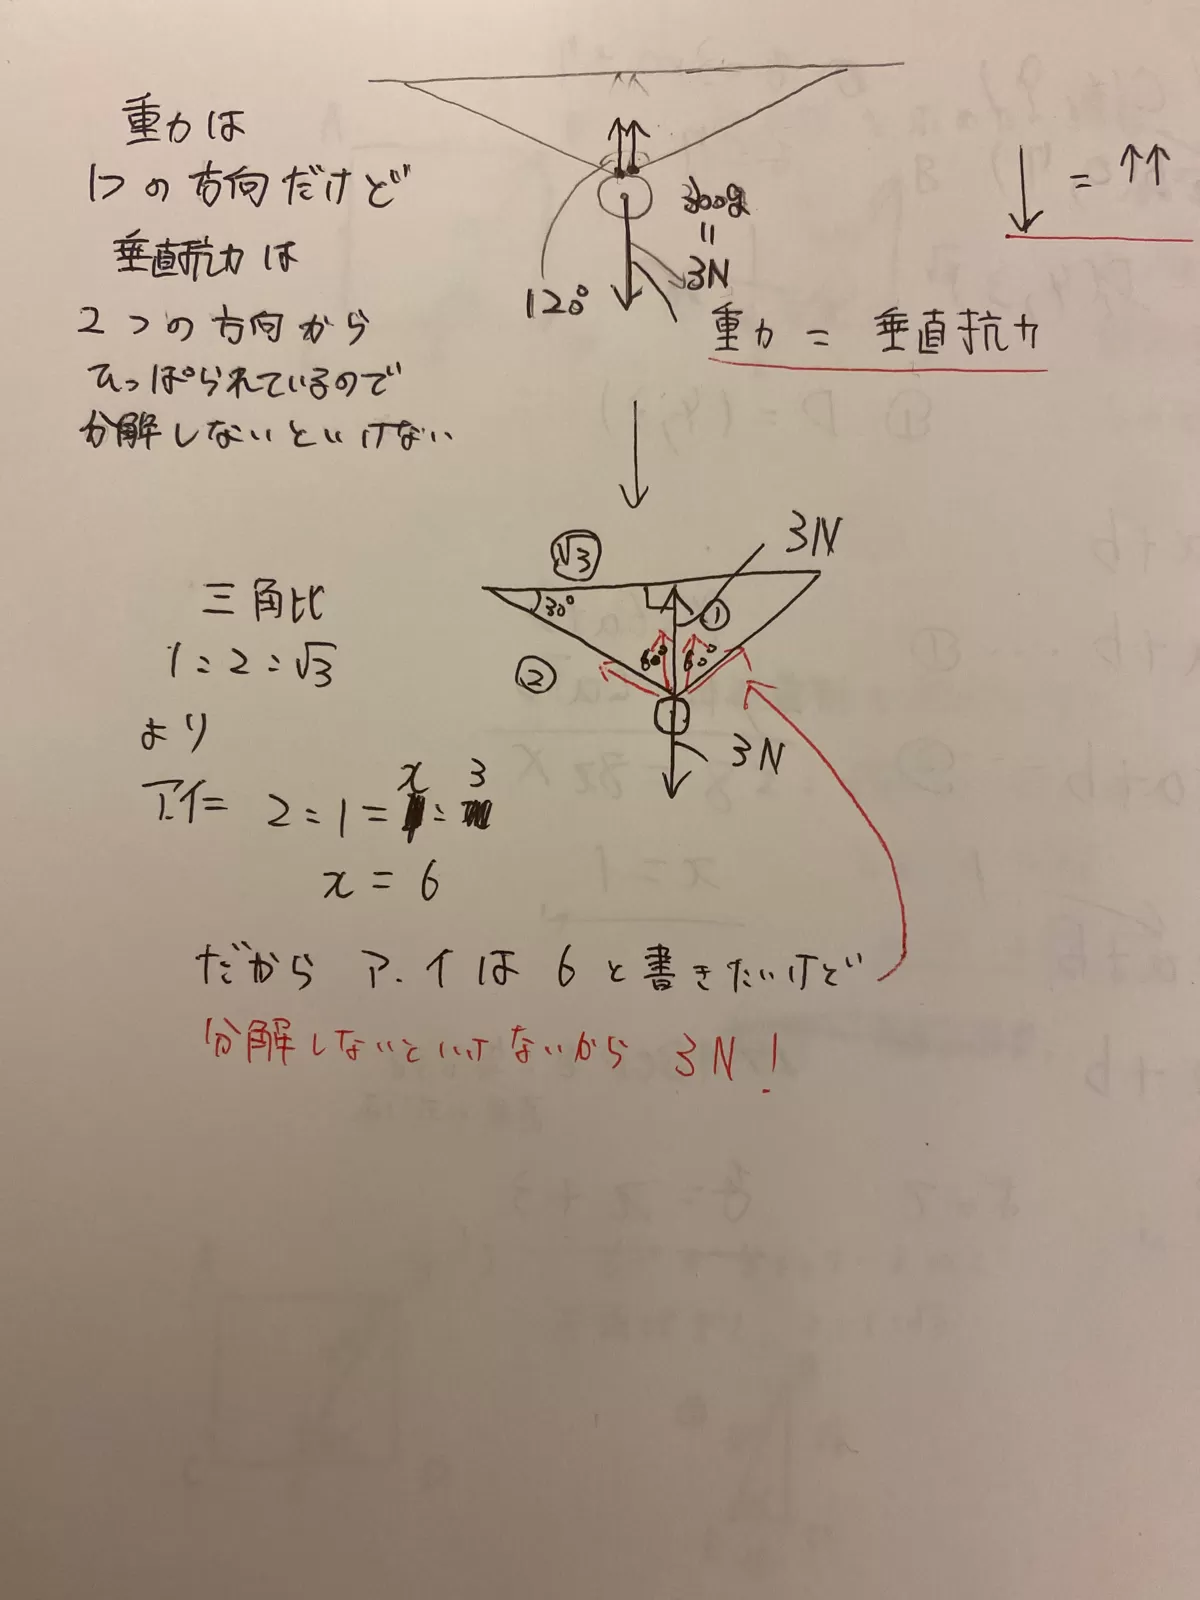 重力は
1つの方向だけど
垂直抗力は
2つの方向から
ひっぱられているので
分解しないといけない
120°
300g
=
3N
↓ = ↑↑
重力 = 垂直抗力
三角比
1:2:√3
より
ア.イ= 2:1=x:3
x=6
√3
30°
①
②
60° 60°
3N
3N
だから ア.イは 6 と書きたいけど
分解しないといけないから 3N!